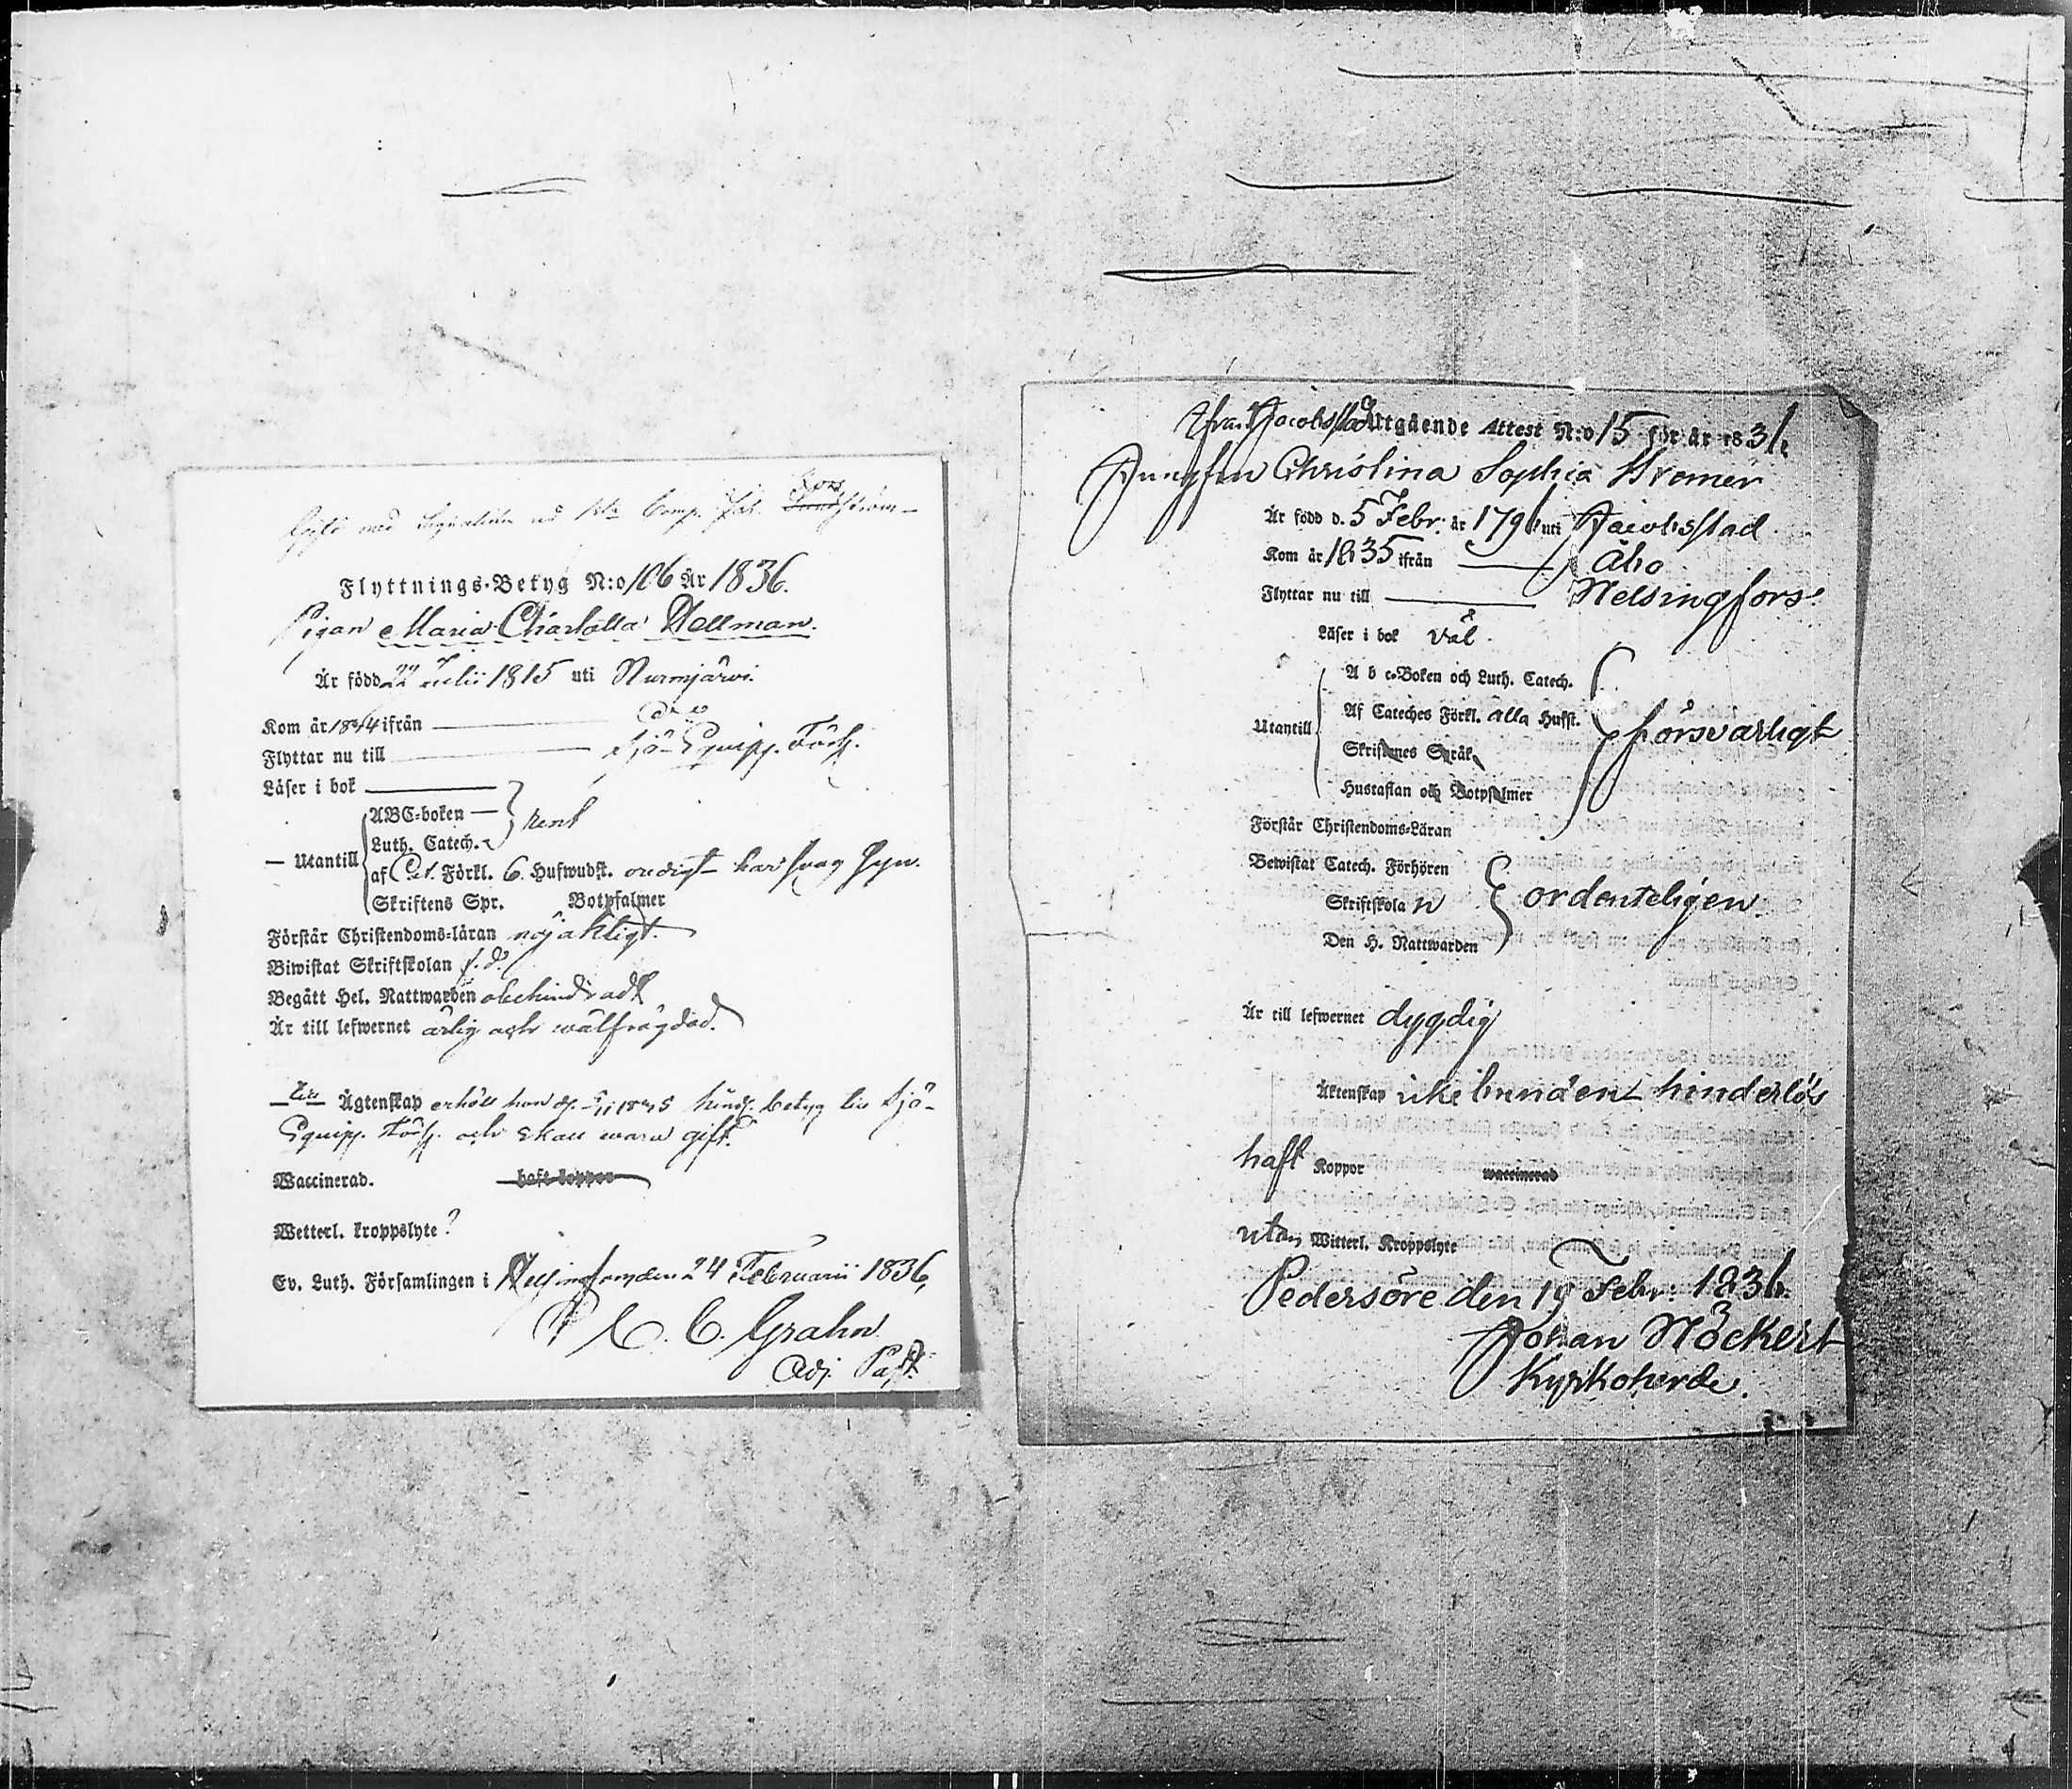 Gift med Signalisten vid 1sta Comp. Joh. Forsström
Flyttnings-Betyg N:o 106 År 1836.
Pigan Maria Charlotta Hellman.
Är född 22 Julii 1815 uti Nurmjärvi.
Kom år 1834 ifrån
Flyttar nu till Sjö-Equip. Förs.
Läser i bok
ABC-boken — rent
Luth. Catech.
— Utantill af Cat. Förkl. 6 Hufwudst. har svag syn.
Skriftens Spr. Botpsalmer
Förstår Christendoms-läran nöjaktigt.
Biwistat Skriftskolan f. d.
Begått Hel. Nattwarden obehindradt
Är till lefwernet ärlig och wälfrägdad.
till Ägtenskap erhöll hon hind. betyg till Sjö-
Equip. Förs. och skall wara gift.
Waccinerad. haft koppor
Wetterl. kroppslyte?
Ev. Luth. Församlingen i Helsingfors den 24 Februarii 1836,
C. C. Grahn
Adj. Past.
ifrån Jacobstad Utgående Attest N:o 15 för år 1836
Jungfru Christina Sophia Kremer
Är född d. 5 Febr: år 1796 uti Jacobsstad
Kom år 1835 ifrån Åbo
Flyttar nu till Helsingfors.
Läser i bok väl.
A b c-Boken och Luth. Catech.
Utantill Af Cateches Förkl. alla Hufst. försvarligt
Skriftenes Språk
Hustaflan och Botpsalmer
Förstår Christendoms-Läran
Bewistat Catech. Förhören
Skriftskolan ordenteligen.
Den H. Nattwarden
Är till lefwernet dygdig
Äktenskap icke bunden hinderlös
haft Koppor waccinerad
utan Witterl. Kroppslyte
Pedersöre den 19 Febr: 1836.
Johan Höckert
Kyrkoherde.